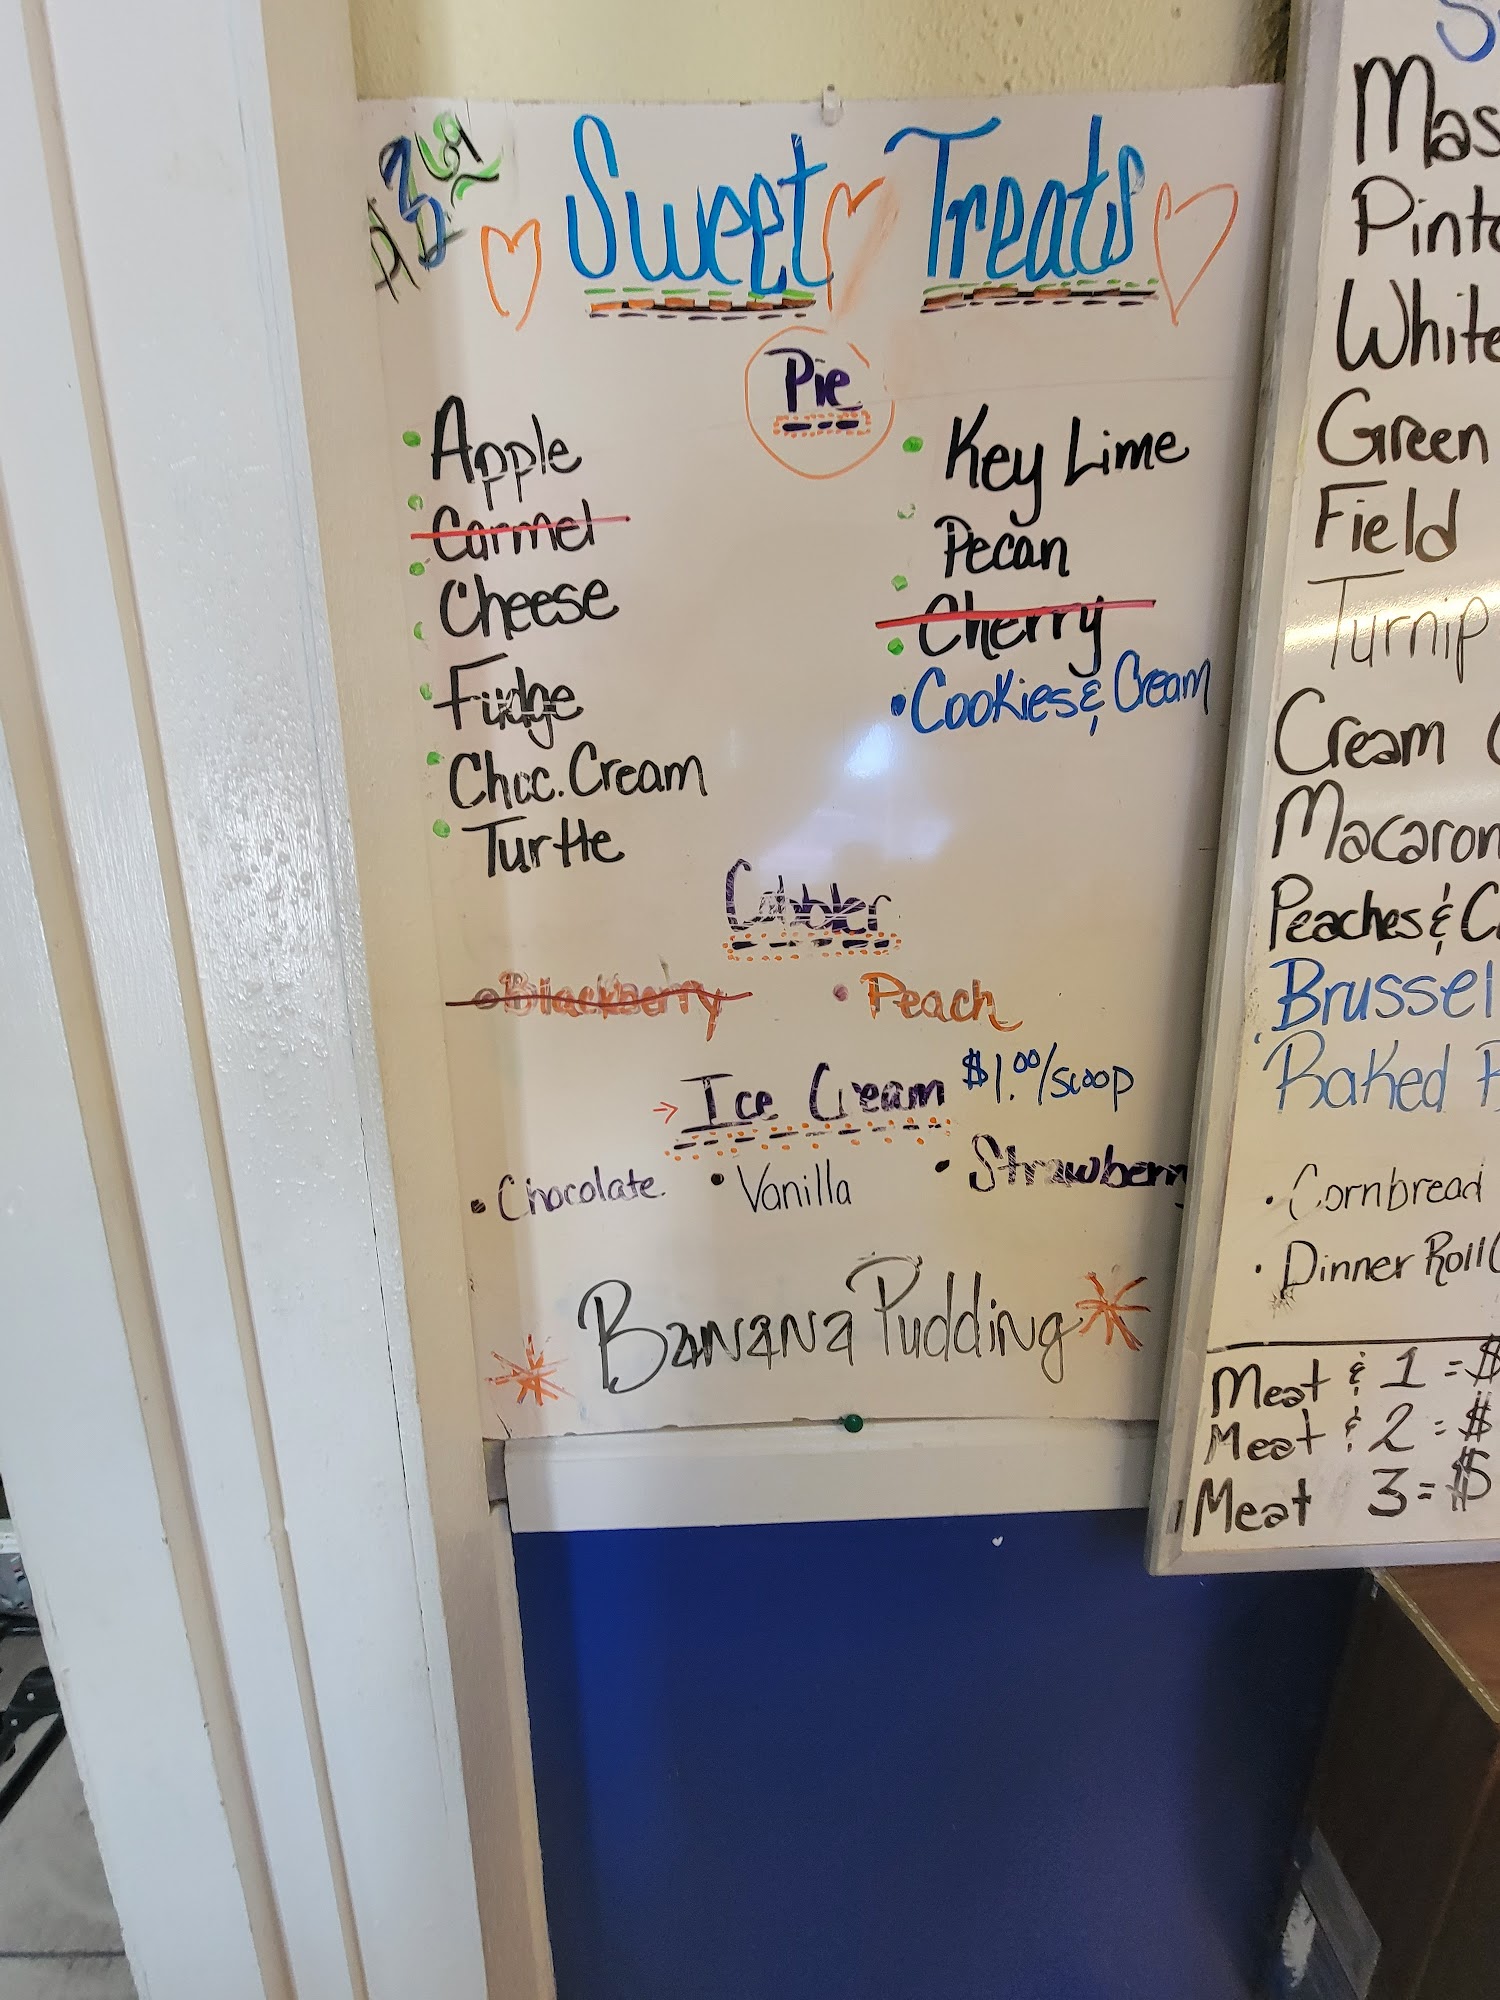 $3.69
Sweet Treats
Pie
Apple
Carmel
Cheese
Fudge
Choc. Cream
Turtle
Key Lime
Pecan
Cherry
• Cookies & Cream
Cobbler
• Blackberry • Peach
→ Ice Cream $1.00/scoop
• Chocolate • Vanilla • Strawberry
Banana Pudding
Mas
Pinto
White
Green
Field
Turnip
Cream
Macaron
Peaches & C
Brussel
Baked
• Cornbread
• Dinner Roll
Meat & 1 = $
Meat & 2 = $
Meat 3 = $